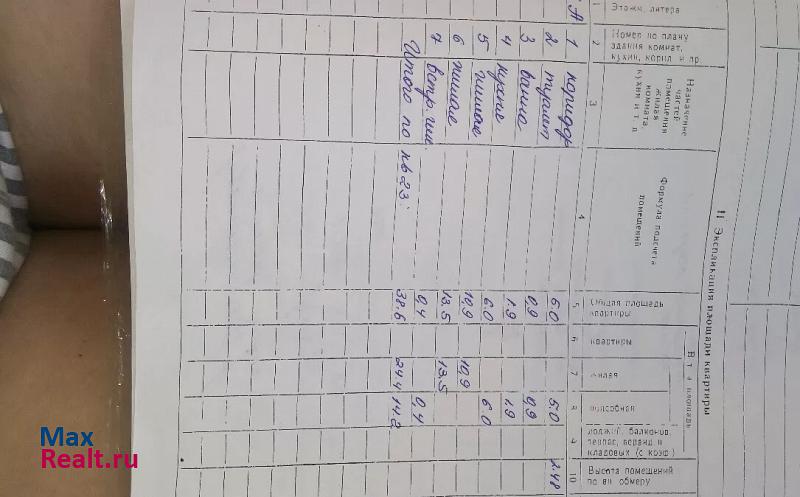 II Экспликация площади квартиры
Этажи, литера
Номер по плану
здания комнат,
кухни, корид. и пр.
Назначение
частей
помещения
жилая
комната
кухни и т. п
Формула подсчета
помещений
Общая площадь
квартиры
в т. ч площадь
квартиры
жилая
подсобная
лоджий, балконов,
террас, веранд и
кладовых (с коэф)
Высота помещений
по вн обмеру
1 2 3 4 5 6 7 8 9 10
А 1 коридор 5.0 5.0 2.48
2 туалет 0,9 0,9
3 ванна 1.9 1.9
4 кухня 6.0 6.0
5 жилая 10,9 10,9
6 жилая 13.5 13.5
7 встр. шк. 0,4 0,4
Итого по кв 23: 38.6 24.4 14.2
Max
Realt.ru